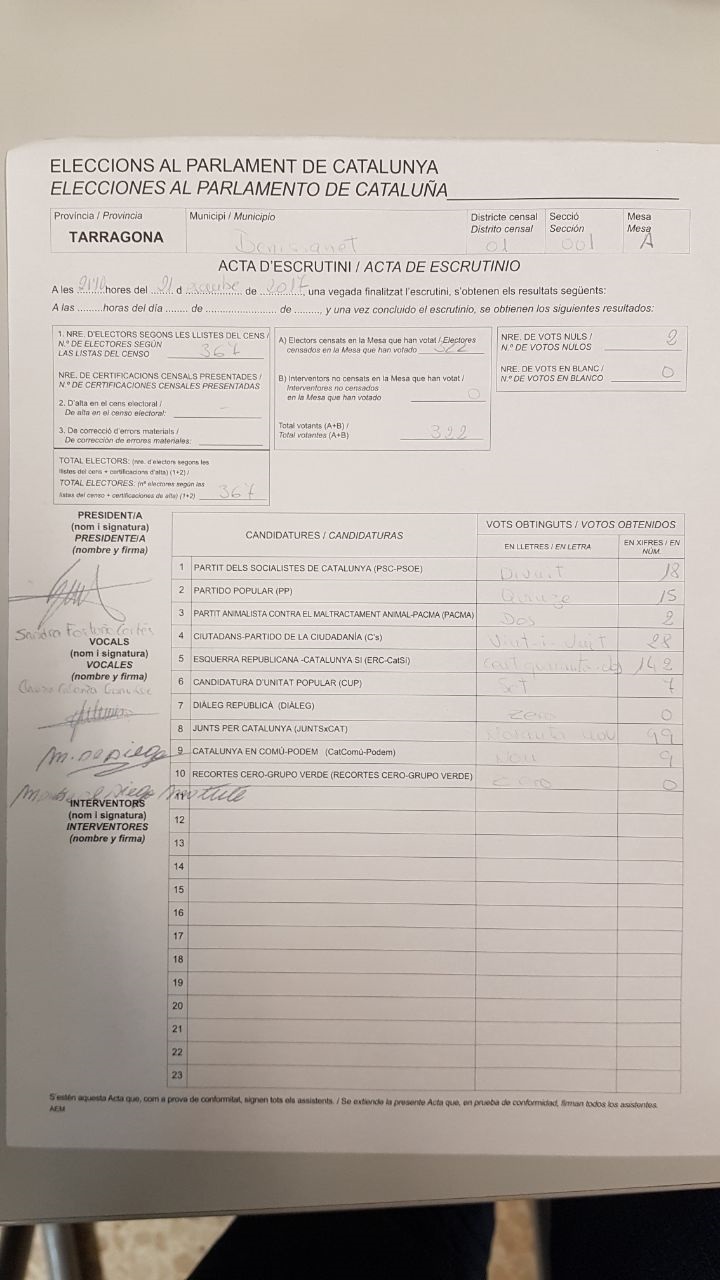 ELECCIONS AL PARLAMENT DE CATALUNYA
ELECCIONES AL PARLAMENTO DE CATALUÑA
Província / Provincia
TARRAGONA
Municipi / Municipio
Districte censal
Distrito censal
01
Secció
Sección
001
Mesa
Mesa
A
ACTA D'ESCRUTINI / ACTA DE ESCRUTINIO
A les ........hores del 21 d ................ de 2017, una vegada finalitzat l'escrutini, s'obtenen els resultats següents:
A las .........horas del día ....... de ........................ de ........., y una vez concluido el escrutinio, se obtienen los siguientes resultados:
1. NRE. D'ELECTORS SEGONS LES LLISTES DEL CENS /
N.º DE ELECTORES SEGÚN
LAS LISTAS DEL CENSO 367
NRE. DE CERTIFICACIONS CENSALS PRESENTADES /
N.º DE CERTIFICACIONES CENSALES PRESENTADAS
2. D'alta en el cens electoral /
De alta en el censo electoral:
3. De correcció d'errors materials /
De corrección de errores materiales:
TOTAL ELECTORS: (nre. d'electors segons les
llistes del cens + certificacions d'alta) (1+2) /
TOTAL ELECTORES: (nº electores según las
listas del censo + certificaciones de alta) (1+2) 367
A) Electors censats en la Mesa que han votat / Electores
censados en la Mesa que han votado 322
B) Interventors no censats en la Mesa que han votat /
Interventores no censados
en la Mesa que han votado 0
Total votants (A+B) /
Total votantes (A+B) 322
NRE. DE VOTS NULS /
N.º DE VOTOS NULOS 2
NRE. DE VOTS EN BLANC /
N.º DE VOTOS EN BLANCO 0
PRESIDENT/A
(nom i signatura)
PRESIDENTE/A
(nombre y firma)
Sandra Fortuño Cortés
VOCALS
(nom i signatura)
VOCALES
(nombre y firma)
M. De Diego
INTERVENTORS
(nom i signatura)
INTERVENTORES
(nombre y firma)
CANDIDATURES / CANDIDATURAS
VOTS OBTINGUTS / VOTOS OBTENIDOS
EN LLETRES / EN LETRA
EN XIFRES / EN NÚM.
1 PARTIT DELS SOCIALISTES DE CATALUNYA (PSC-PSOE) Divuit 18
2 PARTIDO POPULAR (PP) Quinze 15
3 PARTIT ANIMALISTA CONTRA EL MALTRACTAMENT ANIMAL-PACMA (PACMA) Dos 2
4 CIUTADANS-PARTIDO DE LA CIUDADANÍA (C's) Vint-i-vuit 28
5 ESQUERRA REPUBLICANA -CATALUNYA SI (ERC-CatSí) 142
6 CANDIDATURA D'UNITAT POPULAR (CUP) Set 7
7 DIÀLEG REPUBLICÀ (DIÀLEG) Zero 0
8 JUNTS PER CATALUNYA (JUNTSxCAT) Noranta nou 99
9 CATALUNYA EN COMÚ-PODEM (CatComú-Podem) Nou 9
10 RECORTES CERO-GRUPO VERDE (RECORTES CERO-GRUPO VERDE) 0
11
12
13
14
15
16
17
18
19
20
21
22
23
S'estén aquesta Acta que, com a prova de conformitat, signen tots els assistents. / Se extiende la presente Acta que, en prueba de conformidad, firman todos los asistentes.
AEM